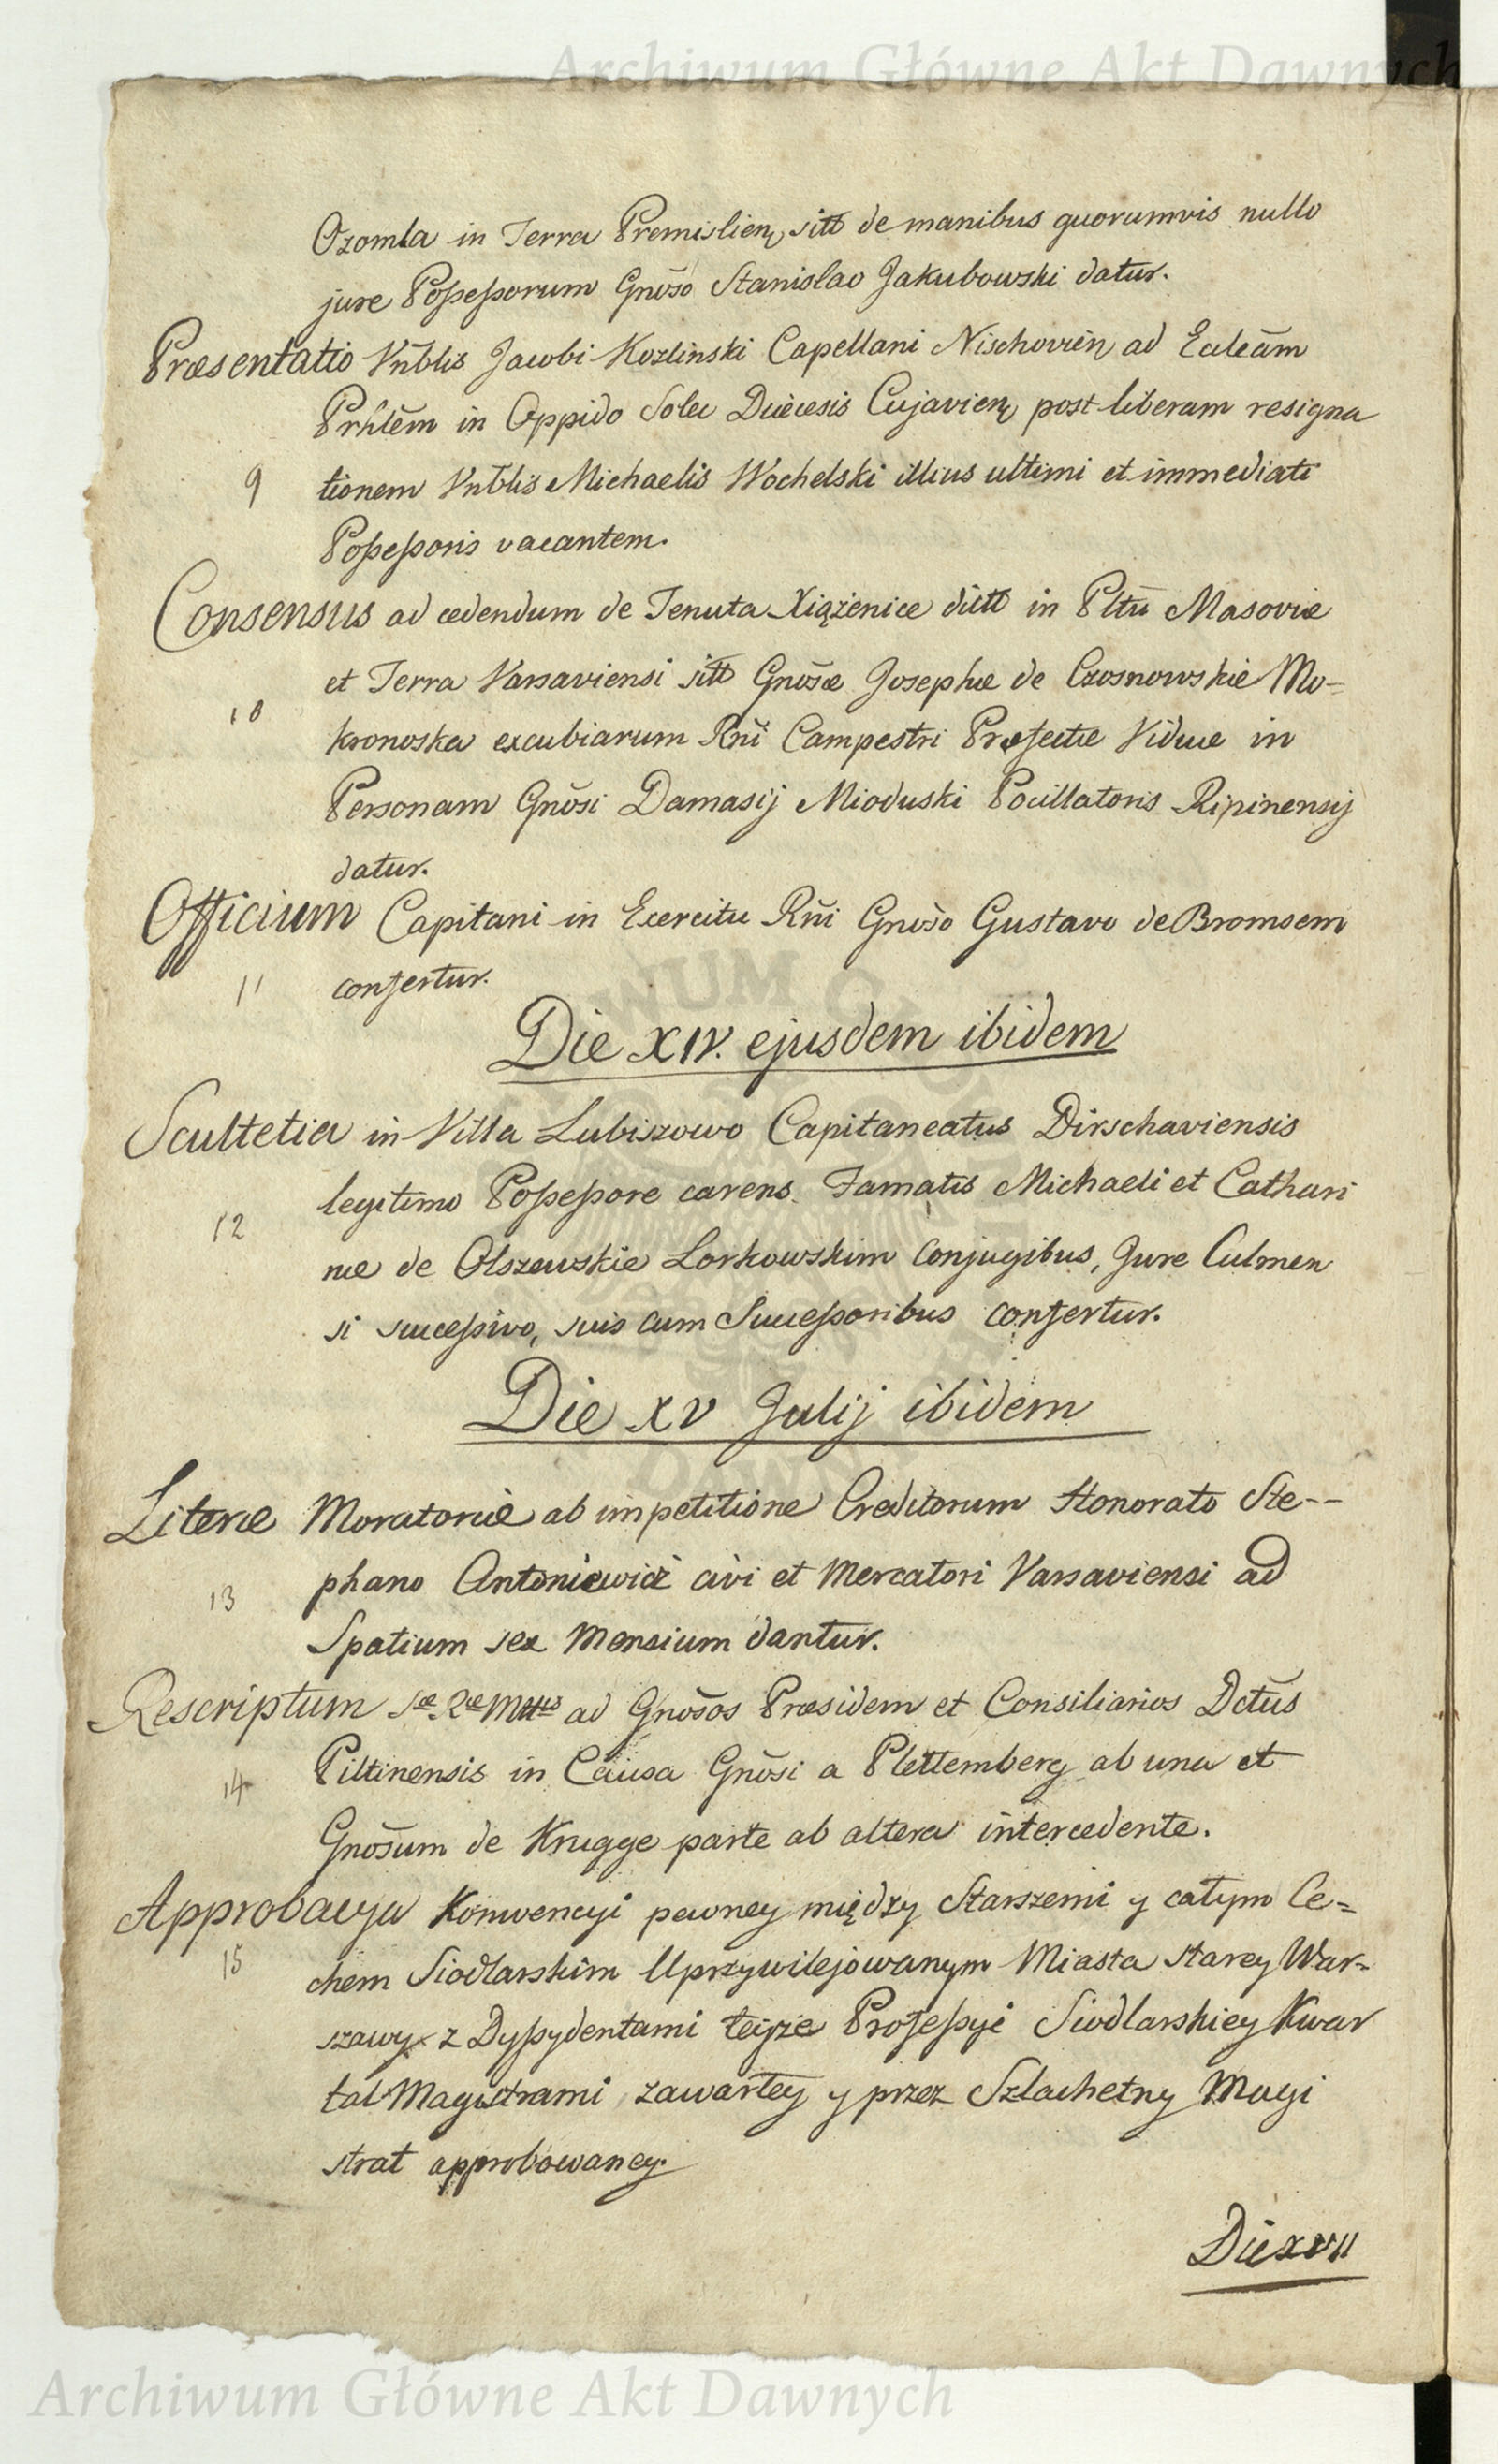 Archiwum Główne Akt Dawnych
Ozomla in Terra Premislien, sitt de manibus quorumvis nullo
jure Poßeßorum Gnõso Stanislao Jakubowski datur.
Præsentatio Vnblis Jacobi Kozlinski Capellani Nischovien ad Eccleãm
Prhlẽm in Oppido Solec Diæcesis Cujavien, post liberam resigna
9 tionem Vnblis Michaelis Wochelski illius ultimi et immediati
Poßeßoris vacantem.
Consensus ad cedendum de Tenuta Xiążenice dictt in Pltũ Masoviæ
et Terra Varsaviensi sitt Gnõsæ Josephæ de Czosnowskie Mo=
10 kronoska excubiarum Rñi Campestri Præfectæ Viduæ in
Personam Gnõsi Damasij Mioduski Pocillatoris Ripinensij
datur.
Officium Capitani in Exercitu Rñi Gnõso Gustavo de Bromsem
11 confertur.
Die XIV. ejusdem ibidem
Scultetia in Villa Lubiszowo Capitaneatus Dirschaviensis
legitimo Poßeßore carens Famatis Michaeli et Cathari
12 næ de Olszewskie Lorkowskim Conjugibus, Jure Culmen
si succeßivo, suis cum Succeßoribus confertur.
Die XV Julij ibidem
Literæ Moratoriæ ab impetitione Creditorum Honorato Ste--
13 phano Antoniewicz civi et Mercatori Varsaviensi ad
Spatium sex Mensium dantur.
Rescriptum Sæ Ræ Mttis ad Gnõsos Præsidem et Consiliarios Dctũs
14 Piltinensis in Causa Gnõsi a Plettemberg ab una et
Gnõsum de Krugge parte ab altera intercedente.
Approbacya Konwencyi pewney między Starszemi y całym Ce=
15 chem Siodlarskim Uprzywilejowanym Miasta Starey War=
szawy z Dyßydentami teyże Profeßyi Siodlarskiey Kwar
tal Magistrami zawartey y przez Szlachetny Magi
strat approbowaney.
Die XVII
Archiwum Główne Akt Dawnych